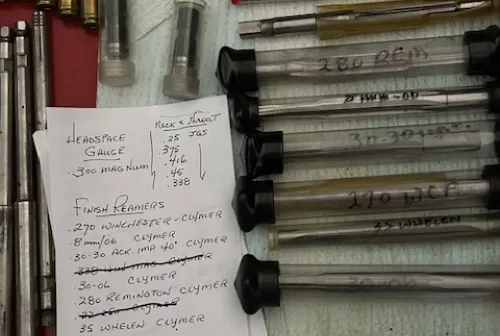 HEADSPACE
GAUGE
.300 MAGNUM
NECK & THROAT
.25 JGS
.375
.416
.45
.338
FINISH REAMERS
.270 WINCHESTER - CLYMER
.8mm/06 CLYMER
.30-30 ACK. IMP. 40° CLYMER
.338 WIN MAG CLYMER
30-06 CLYMER
.280 REMINGTON CLYMER
22-250 CLYMER
35 WHELEN CLYMER
280 REM
8mm-06
30-30
270 WCF
35 WHELEN
30-06